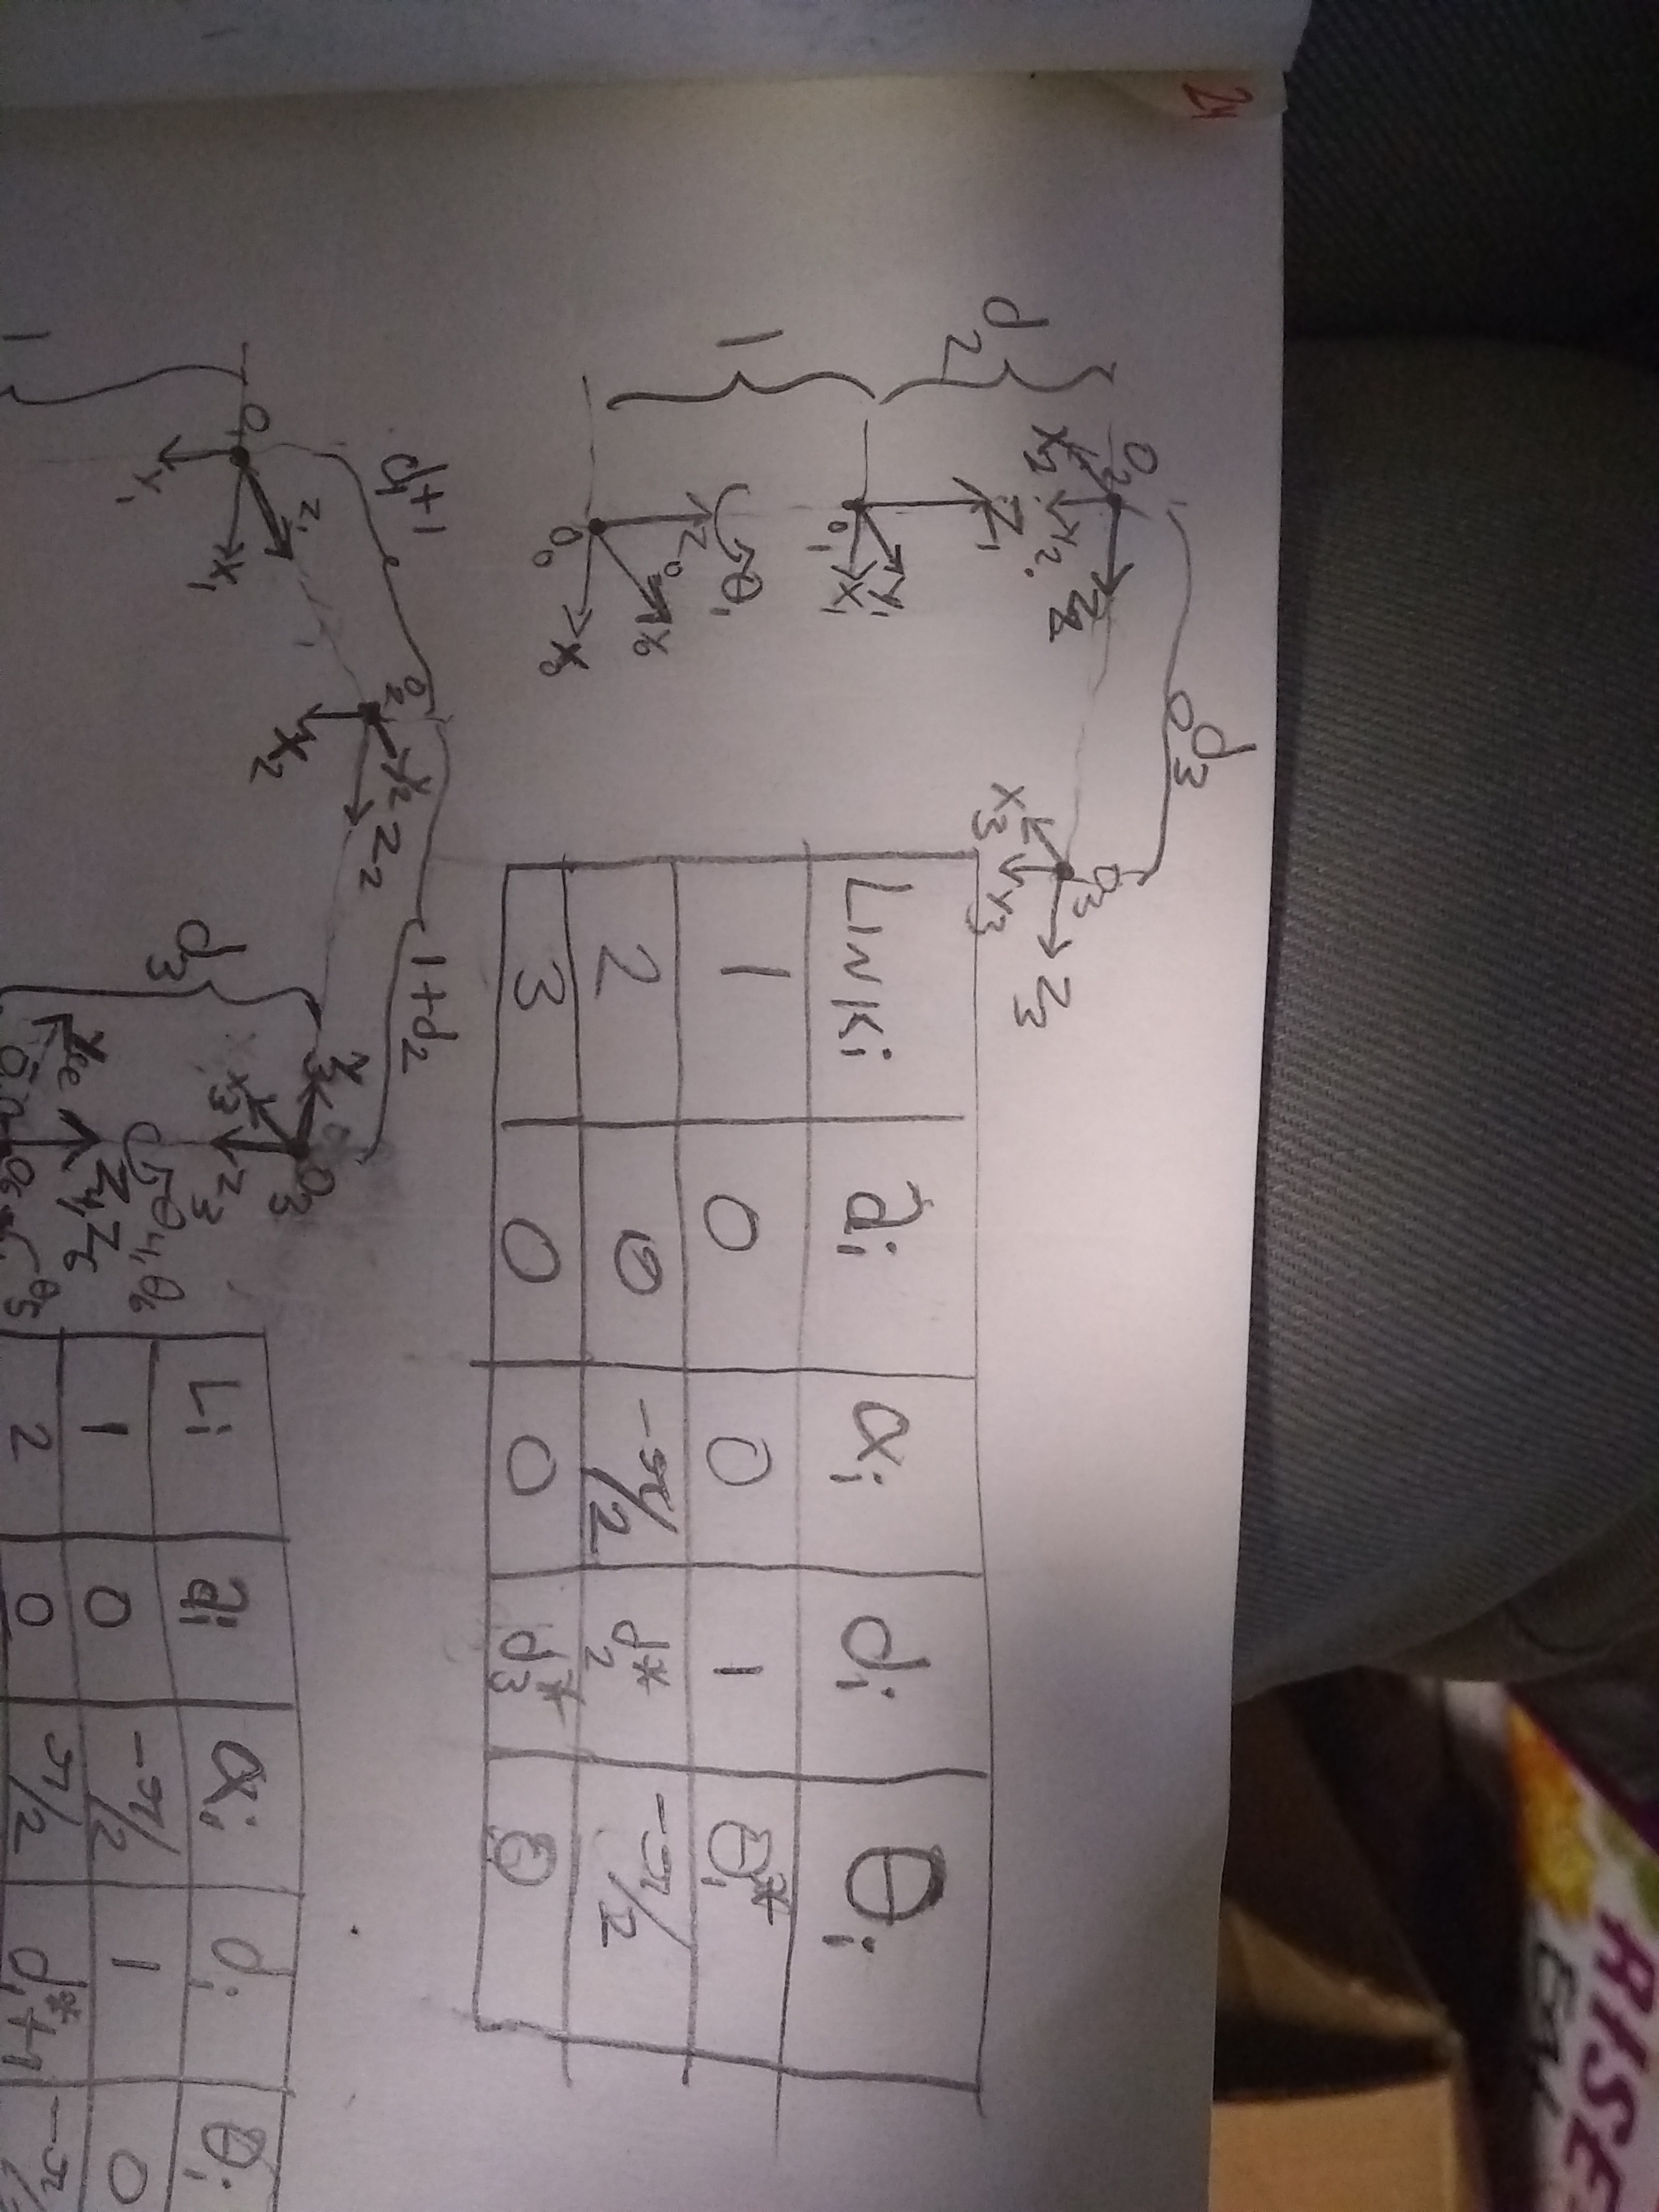 24
d2
1
O2
X2
Y2
Z2
Z1
Y1
O1
X1
Z0
θ1
Y0
O0
X0
d3
O3
X3
Y3
Z3
LINKi ai αi di θi
1 0 0 1 θ1*
2 0 -π/2 d2* -π/2
3 0 0 d3* 0
1
O1
Y1
Z1
X1
d1+1
O2
X2
Y2
Z2
1+d2
d3
Y3
X3
Z3
O3
θ4, θ6
Z4, Z6
θ5
Li ai αi di θi
1 0 -π/2 1 0
2 0 π/2 d1*+1 -π/
RISE